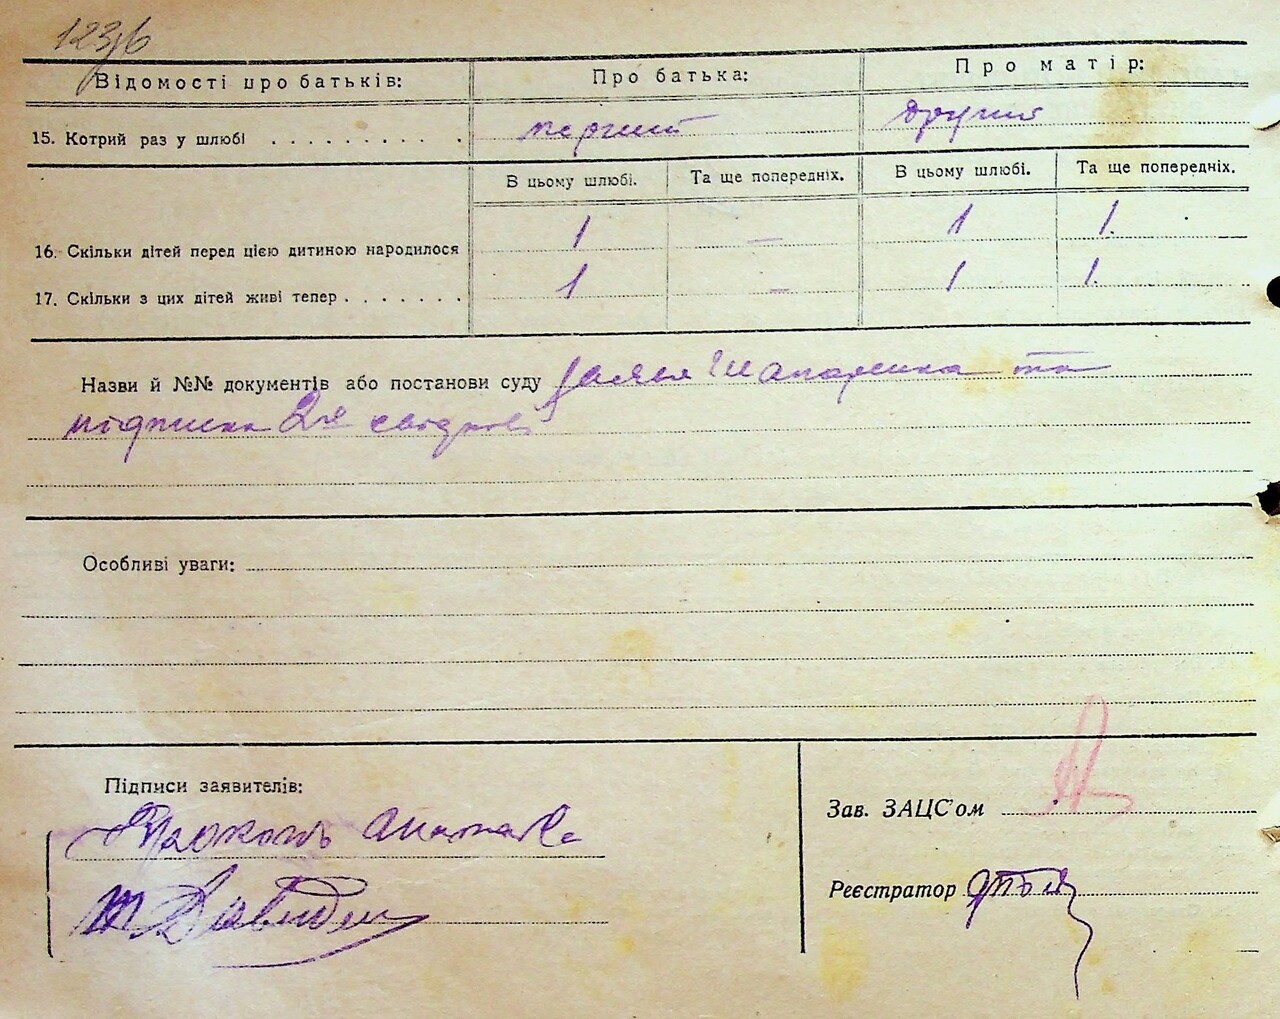 123/6
Відомості про батьків: Про батька: Про матір:
15. Котрий раз у шлюбі . . . . . . . . . . перший другий
В цьому шлюбі. Та ще попередніх. В цьому шлюбі. Та ще попередніх.
16. Скільки дітей перед цією дитиною народилося 1 — 1 1.
17. Скільки з цих дітей живі тепер . . . . . . . 1 — 1 1.
Назви й №№ документів або постанови суду заява Шапаренка та
підписка 2х свідків
Особливі уваги:
Підписи заявителів:
Зав. ЗАЦС'ом
Прокопь
Реєстратор
Давиден